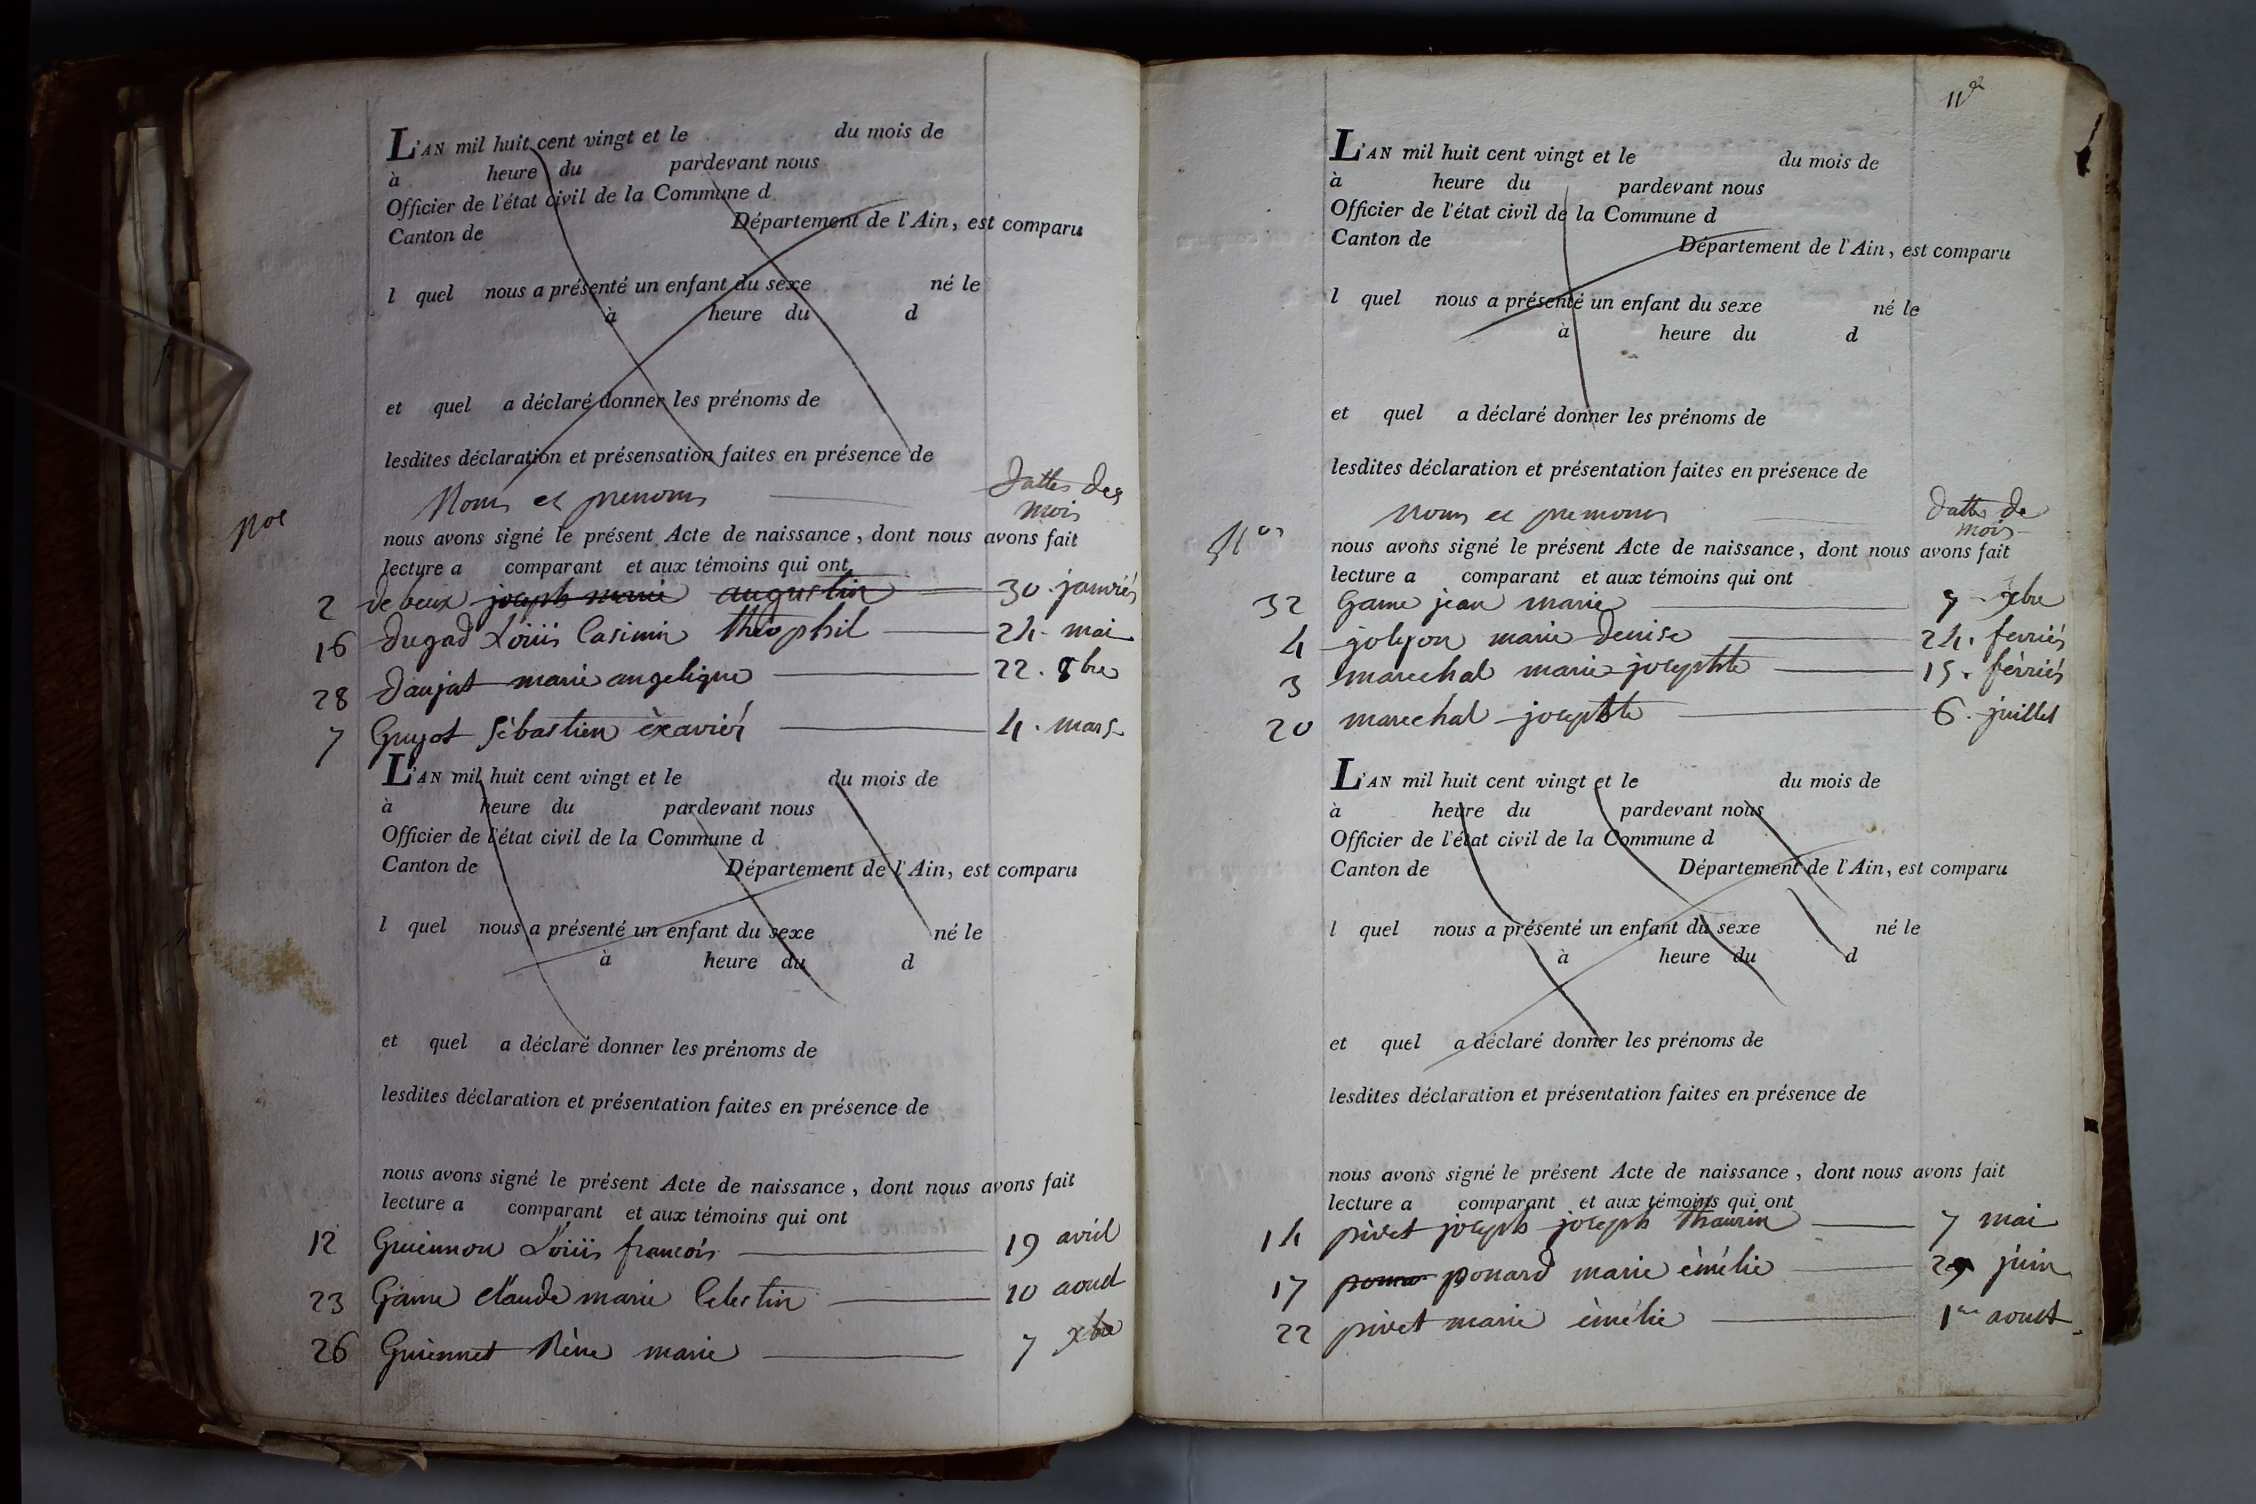 L'AN mil huit cent vingt et le du mois de
à heure du pardevant nous
Officier de l'état civil de la Commune d
Canton de Département de l'Ain, est comparu
l quel nous a présenté un enfant du sexe né le
à heure du d
et quel a déclaré donner les prénoms de
lesdites déclaration et présensation faites en présence de
Nos Noms et prenoms dattes des
mois
nous avons signé le présent Acte de naissance, dont nous avons fait
lecture a comparant et aux témoins qui ont
2 de beux joseph marie augustin 30. janvier
16 dugad Loüis Casimir théophil 24. mai
28 daujat marie angelique 22. 8bre
7 Guyot sèbastien èxavier 4. mars
L'AN mil huit cent vingt et le du mois de
à heure du pardevant nous
Officier de l'état civil de la Commune d
Canton de Département de l'Ain, est comparu
l quel nous a présenté un enfant du sexe né le
à heure du d
et quel a déclaré donner les prénoms de
lesdites déclaration et présentation faites en présence de
nous avons signé le présent Acte de naissance, dont nous avons fait
lecture a comparant et aux témoins qui ont
12 Guiennon Loüis francois 19 avril
23 Game claude marie Celestin 10 aoust
26 Guiennet Rène marie 7 xbre
L'AN mil huit cent vingt et le du mois de
à heure du pardevant nous
Officier de l'état civil de la Commune d
Canton de Département de l'Ain, est comparu
l quel nous a présenté un enfant du sexe né le
à heure du d
et quel a déclaré donner les prénoms de
lesdites déclaration et présentation faites en présence de
Nos noms et prenoms dattes de
mois
nous avons signé le présent Acte de naissance, dont nous avons fait
lecture a comparant et aux témoins qui ont
32 Game jean marie 9 xbre
4 golyon marie denise 24. fevrier
3 marechal marie josephte 15. février
20 marechal josephte 6. juillet
L'AN mil huit cent vingt et le du mois de
à heure du pardevant nous
Officier de l'état civil de la Commune d
Canton de Département de l'Ain, est comparu
l quel nous a présenté un enfant du sexe né le
à heure du d
et quel a déclaré donner les prénoms de
lesdites déclaration et présentation faites en présence de
nous avons signé le présent Acte de naissance, dont nous avons fait
lecture a comparant et aux témoins qui ont
14 pivet joseph joseph thaurin 7 mai
17 ponard marie èmélie 29 juin
22 pivet marie èmélie 1er aoust